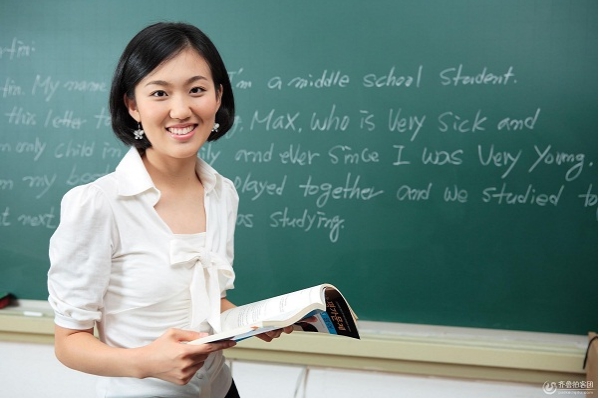 My name I'm a middle school Student.
this letter to Max, who is Very Sick and
only child in and ever since I was Very Young.
my played together and we studied to
next as studying.
齐鲁拍客团